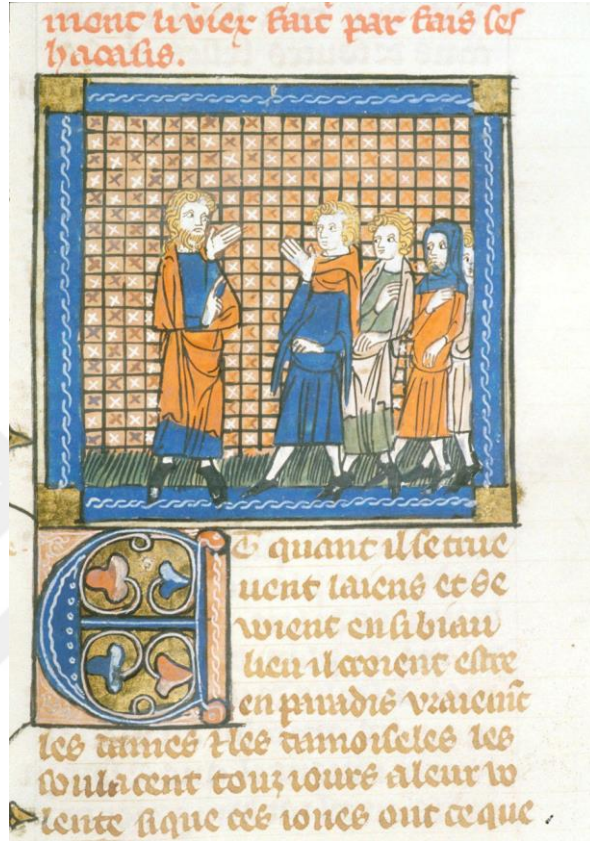 ment li viex fait par fais ses
hacasis.
Et quant il se true
uent laiens et se
voient en si biau
lieu il croient estre
en paradis vraiemt
les dames & les damoiseles les
soulacent touz iours a leur vo
lente si que ces iones ont ce que